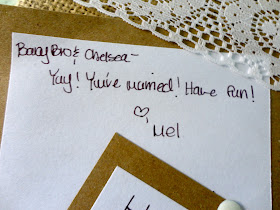 Baby Bro & Chelsea-
Yay! You're married! Have fun!
♡,
Mel